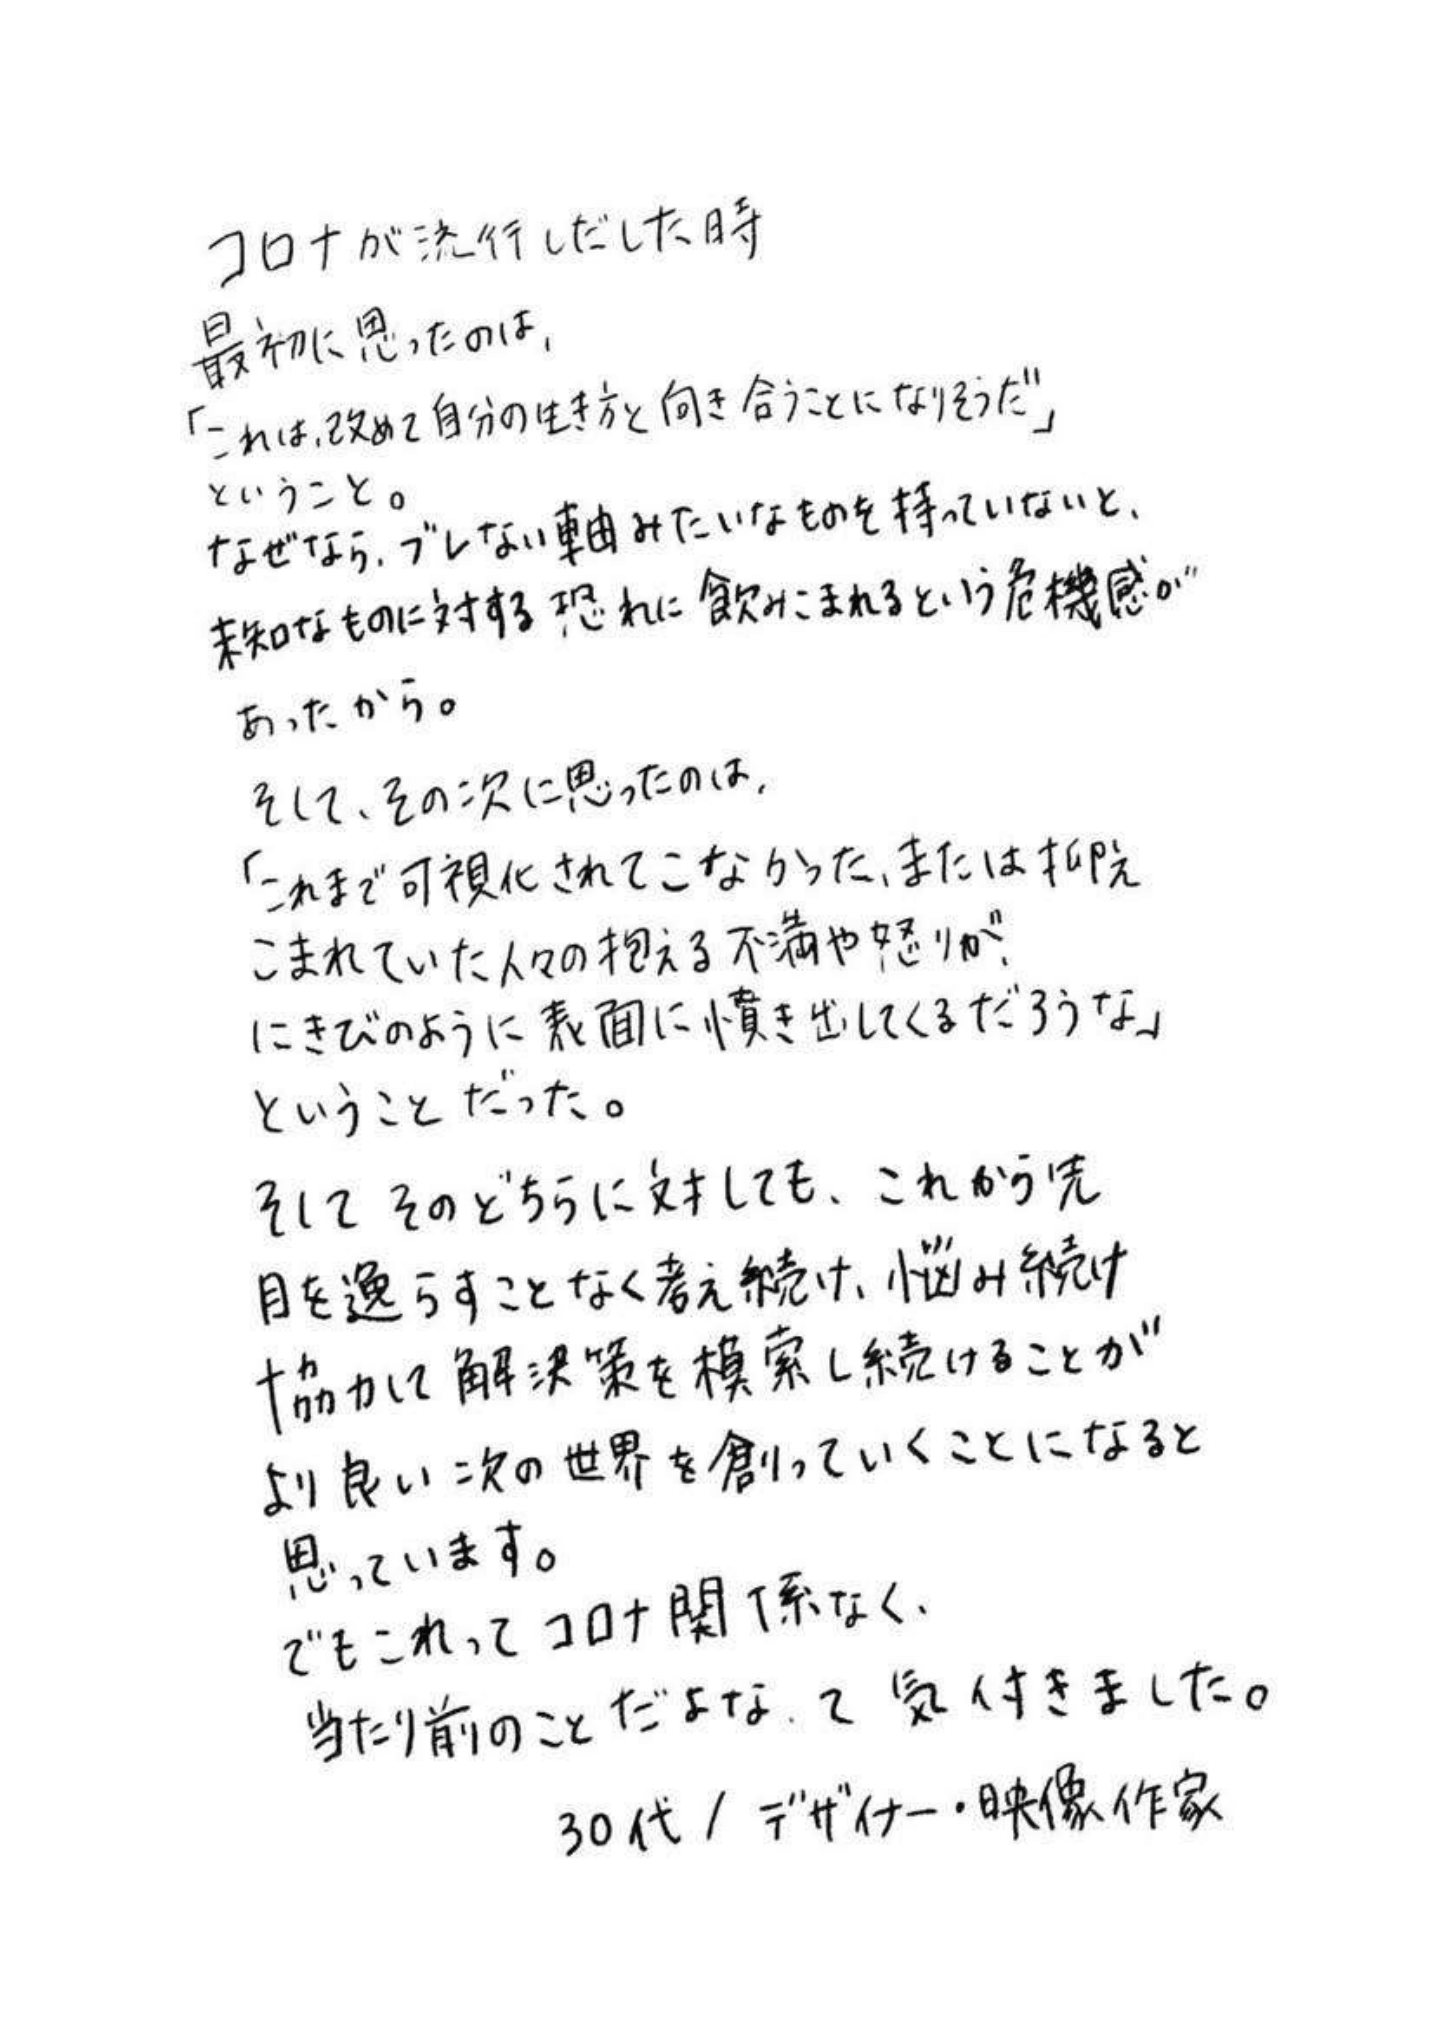 コロナが流行しだした時
最初に思ったのは、
「これは、改めて自分の生き方と向き合うことになりそうだ」
ということ。
なぜなら、ブレない軸みたいなものを持っていないと、
未知なものに対する恐れに飲みこまれるという危機感が
あったから。
そして、その次に思ったのは、
「これまで可視化されてこなかった、または抑え
こまれていた人々の抱える不満や怒りが、
にきびのように表面に憤き出してくるだろうな」
ということだった。
そしてそのどちらに対しても、これから先
目を逸らすことなく考え続け、悩み続け
協力して解決策を模索し続けることが
より良い次の世界を創っていくことになると
思っています。
でもこれってコロナ関係なく、
当たり前のことだよな、て気付きました。
30代/デザイナー・映像作家